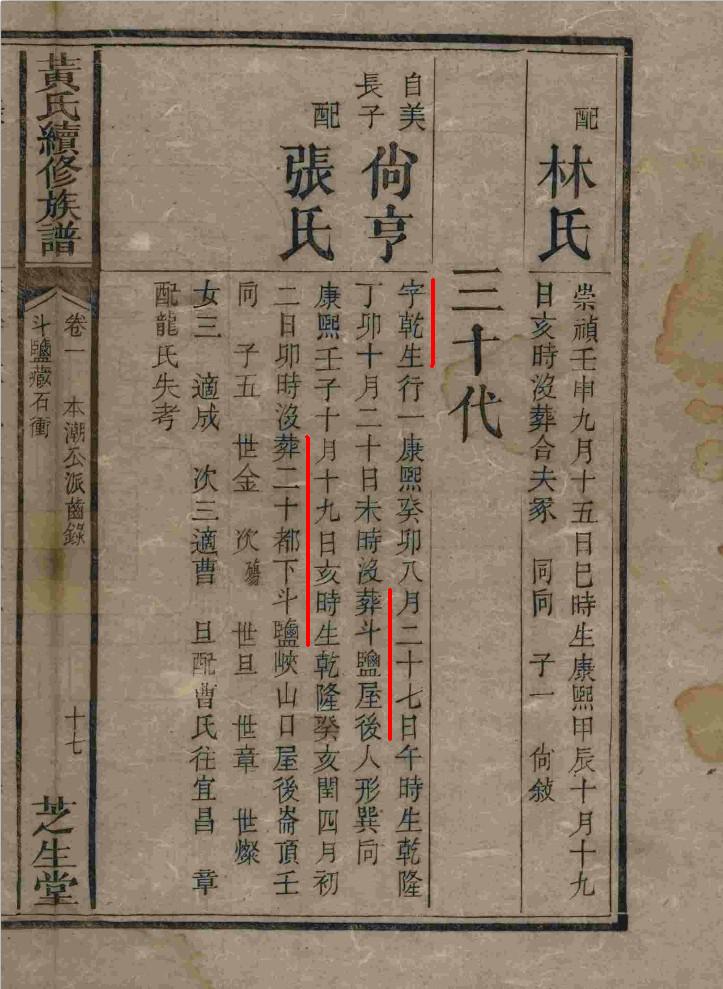 配 林氏
崇禎壬申九月十五日巳時生康熙甲辰十月十九
日亥時沒葬合夫冢 同向 子一 尙敍
三十代
自美
長子
尙亨
字乾生行一康熙癸卯八月二十七日午時生乾隆
丁卯十月二十日未時沒葬斗鹽屋後人形巽向
配 張氏
康熙壬子十月十九日亥時生乾隆癸亥閏四月初
二日卯時沒葬二十都下斗鹽峽山口屋後崙頂壬
向 子五 世金 次殤 世旦 世章 世燦
女三 適成 次三適曹 旦配曹氏往宜昌 章
配龍氏失考
黃氏續修族譜
卷一 本潮公派齒錄
斗鹽藏石衝
十七
芝生堂